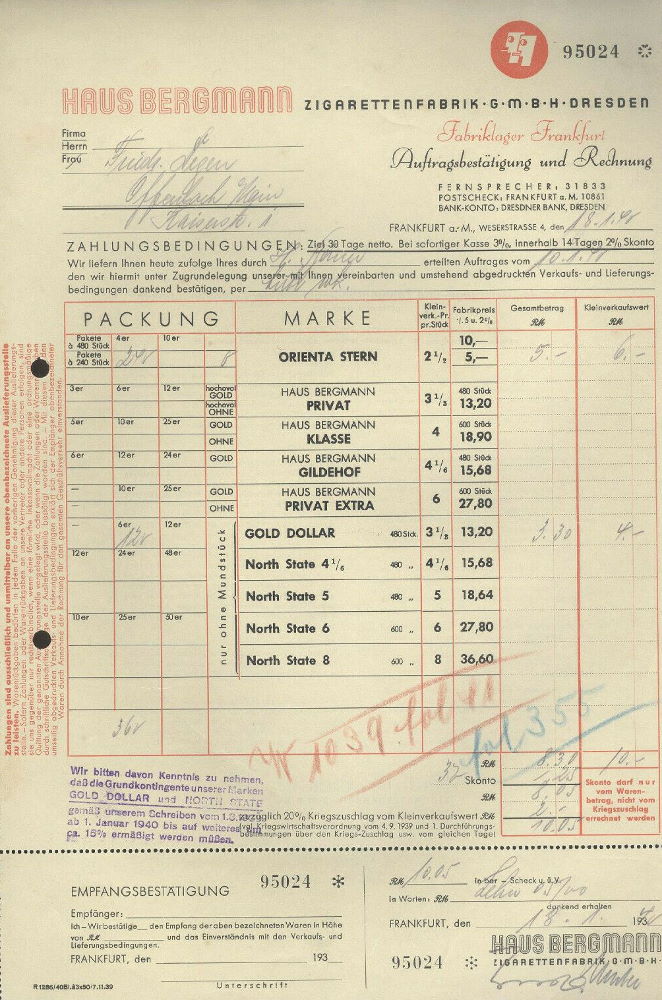 95024 *
HAUS BERGMANN ZIGARETTENFABRIK·G·M·B·H·DRESDEN
Fabriklager Frankfurt
Auftragsbestätigung und Rechnung
Firma
Herrn
Frau
Offenbach Main
Kaiserstr. 1
FERNSPRECHER: 31833
POSTSCHECK: FRANKFURT a. M. 10861
BANK-KONTO: DRESDNER BANK, DRESDEN
FRANKFURT a.-M., WESERSTRASSE 4, den 18.1.40
ZAHLUNGSBEDINGUNGEN: Ziel 30 Tage netto. Bei sofortiger Kasse 3%, innerhalb 14 Tagen 2% Skonto
Wir liefern Ihnen heute zufolge Ihres durch erteilten Auftrages vom 10.1.40
den wir hiermit unter Zugrundelegung unserer mit Ihnen vereinbarten und umstehend abgedruckten Verkaufs- und Lieferungs-
bedingungen dankend bestätigen, per
PACKUNG MARKE Klein-verk.-Pr. pr.Stück Fabrikpreis Gesamtbetrag RM Kleinverkaufswert RM
Pakete à 480 Stück 4er 10er 10,—
Pakete à 240 Stück 8 ORIENTA STERN 2 1/2 5,— 5.- 6.-
3er 6er 12er hochoval GOLD HAUS BERGMANN 480 Stück
hochoval OHNE PRIVAT 3 1/3 13,20
5er 10er 25er GOLD HAUS BERGMANN 600 Stück
OHNE KLASSE 4 18,90
6er 12er 24er GOLD HAUS BERGMANN 480 Stück
GILDEHOF 4 1/6 15,68
— 10er 25er GOLD HAUS BERGMANN 600 Stück
OHNE PRIVAT EXTRA 6 27,80
— 6er 12er GOLD DOLLAR 480 Stck. 3 1/3 13,20 3.30 4.-
12er 24er 48er North State 4 1/6 480 „ 4 1/6 15,68
nur ohne Mundstück
North State 5 480 „ 5 18,64
10er 25er 50er North State 6 600 „ 6 27,80
North State 8 600 „ 8 36,60
W 1039 fol 11
fol 355
RM 8.30 10.-
Skonto
RM 8.05
2.-
10.05
Skonto darf nur
vom Waren-
betrag, nicht vom
Kriegszuschlag
errechnet werden
Wir bitten davon Kenntnis zu nehmen,
daß die Grundkontingente unserer Marken
GOLD DOLLAR und NORTH STATE
gemäß unserem Schreiben vom
ab 1. Januar 1940 bis auf weiteres um
ca. 15% ermäßigt werden müßen.
zuzüglich 20% Kriegszuschlag vom Kleinverkaufswert RM
Kriegswirtschaftsverordnung vom 4. 9. 1939 und 1. Durchführungs-
bestimmungen über den Kriegs-Zuschlag usw. vom gleichen Tage)
Zahlungen sind ausschließlich und unmittelbar an unsere obenbezeichnete Auslieferungsstelle
zu leisten.
EMPFANGSBESTÄTIGUNG 95024 *
Empfänger:
Ich – Wir bestätige den Empfang der oben bezeichneten Waren in Höhe
von RM und das Einverständnis mit den Verkaufs- und
Lieferungsbedingungen.
FRANKFURT, den 193
Unterschrift
RM 10.05 in bar – Scheck u. ü.V.
in Worten: RM Zehn 05/00
dankend erhalten
FRANKFURT, den 18. 1. 193
95024 * HAUS BERGMANN
ZIGARETTENFABRIK·G·M·B·H·